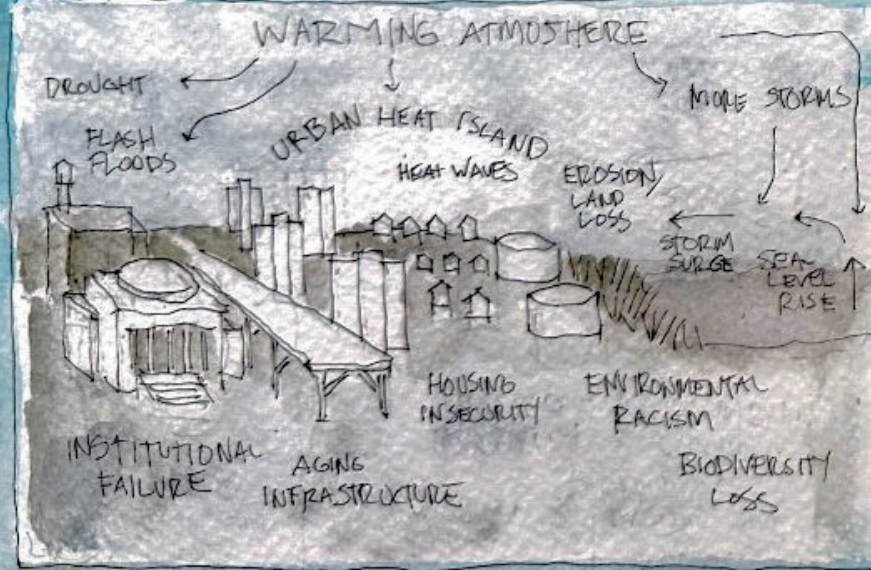 WARMING ATMOSHERE
DROUGHT
FLASH
FLOODS
URBAN HEAT ISLAND
HEAT WAVES
MORE STORMS
EROSION/
LAND
LOSS
STORM
SURGE
SEA
LEVEL
RISE
HOUSING
INSECURITY
ENVIRONMENTAL
RACISM
INSTITUTIONAL
FAILURE
AGING
INFRASTRUCTURE
BIODIVERSITY
LOSS